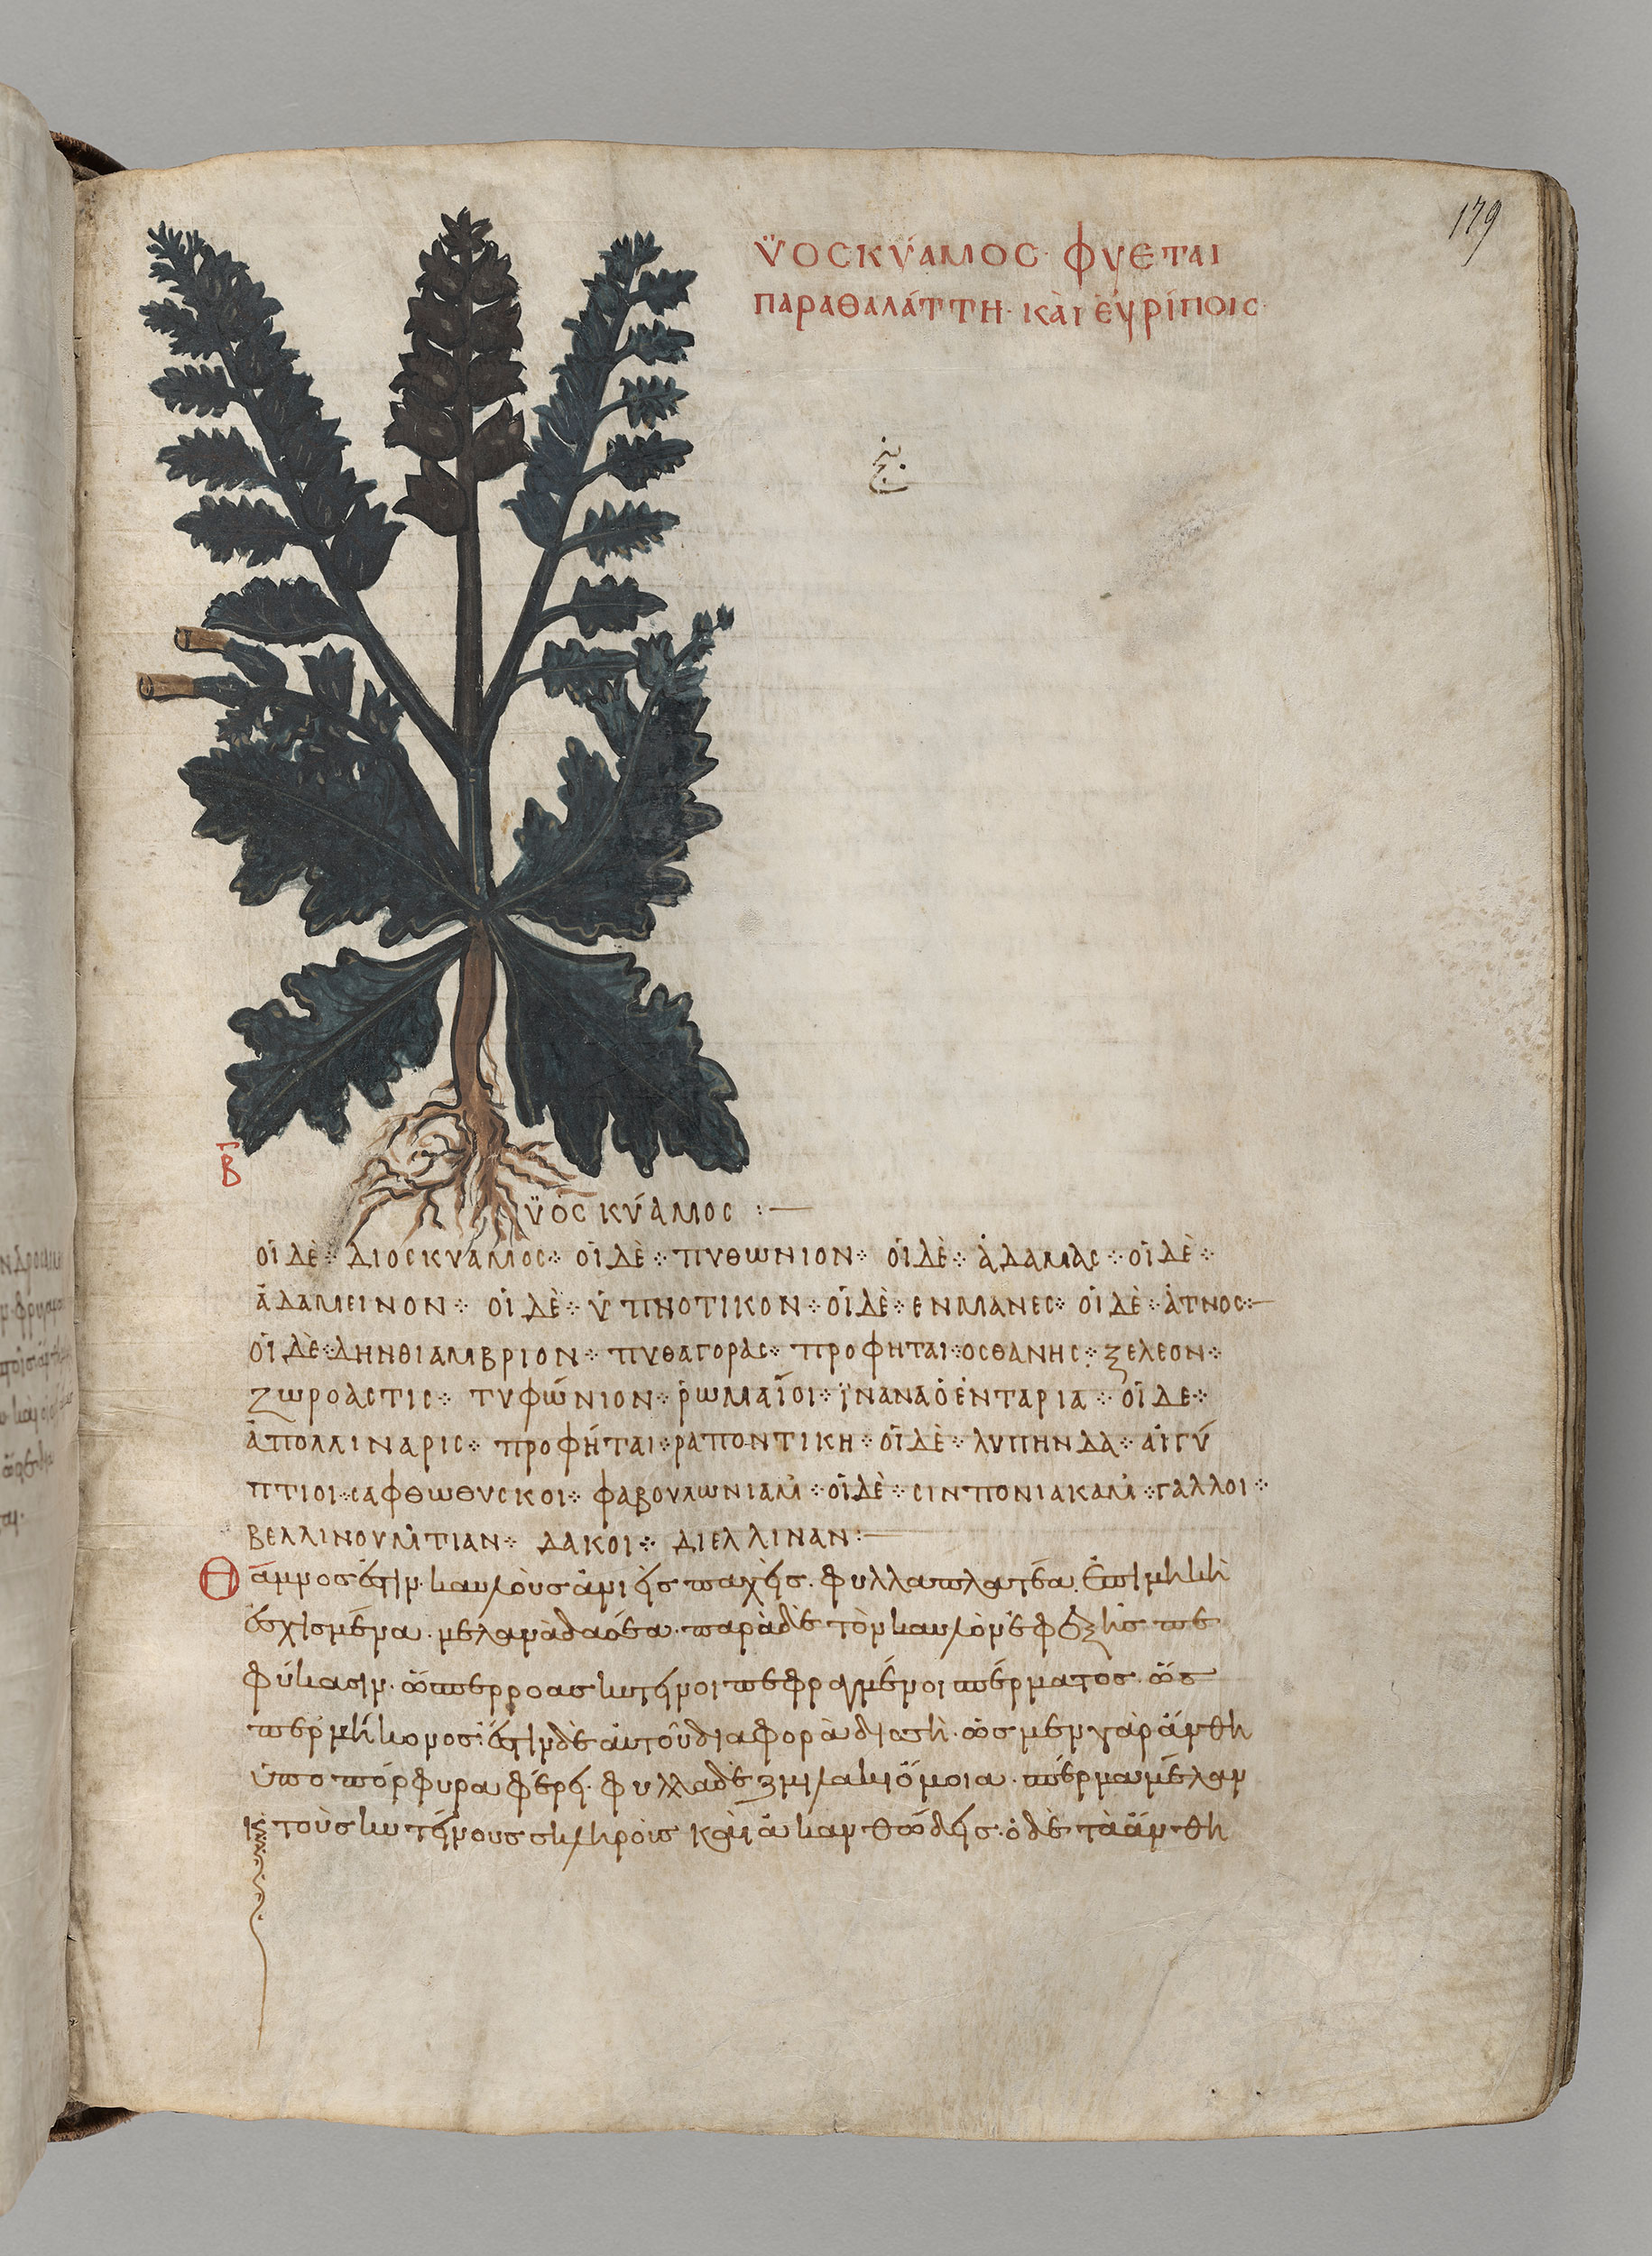 179
ϋοσκύαμοσ· φυεται
παραθαλάττη· κὰι ἐυρίποις·
بنج
Β
ϋὸς κύαμος :—
οἱ δὲ ⁘ διοσκυαμος ⁘ οἱ δὲ ⁘ πυθωνιον ⁘ οἱ δὲ ⁘ ἀδαμας ⁘ οἱ δὲ ⁘
ἀδαμεινον ⁘ οἱ δὲ ⁘ ὑπνοτικον ⁘ οἱ δὲ ⁘ ενμανες ⁘ οἱ δὲ ⁘ ἀτνος :—
οἱ δὲ ⁘ δηηθιαμβριον ⁘ πυθαγορας ⁘ προφηται ⁘ οσθανης ⁘ ξελεον ⁘
ζωροαστις ⁘ τυφώνιον ⁘ ῥωμαῖοι ⁘ ϊναναὀἐνταρια ⁘ οἱ δε ⁘
ἀπολλιναρις ⁘ προφήται ⁘ ραποντικη ⁘ οἱ δὲ ⁘ λυπηνδα ⁘ αἰγύ
πτιοι ⁘ σαφθωθυσκοι ⁘ φαβουλωνιαμ ⁘ οἱ δὲ ⁘ σινπονιακαμ ⁘ γαλλοι ⁘
βελλινουμτιαν ⁘ δακοι ⁘ διελλιναν :—
Θάμνοσ ἐστὶν· καυλὸυσ ἀνιεὶσ παχεὶσ. φυλλα πλατέα. ἐπιμήκη
ἐσχισμένα· μελανὰ δασέα· παρὰ δὲ τὸν καυλὸν ἐφεξῆσ πε
φύκασιν· ὥσπερ ροασ κυτίνοι πεφραγμένοι σπέρματοσ· ὥσ
περ μήκονοσ: ἔστιν δὲ ἀυτοῦ διαφορὰ δισσὴ· ὡσ μεν γὰρ ἄνθη
ὑποπόρφυρα φέρει· φυλλα δὲ σμιλακι ὅμοια· σπέρμα μέλαν
κ τοὺσ κυτίνουσ σκληροὺσ κὰι ἀκανθώδεισ· ὁ δὲ τὰ ἄνθη